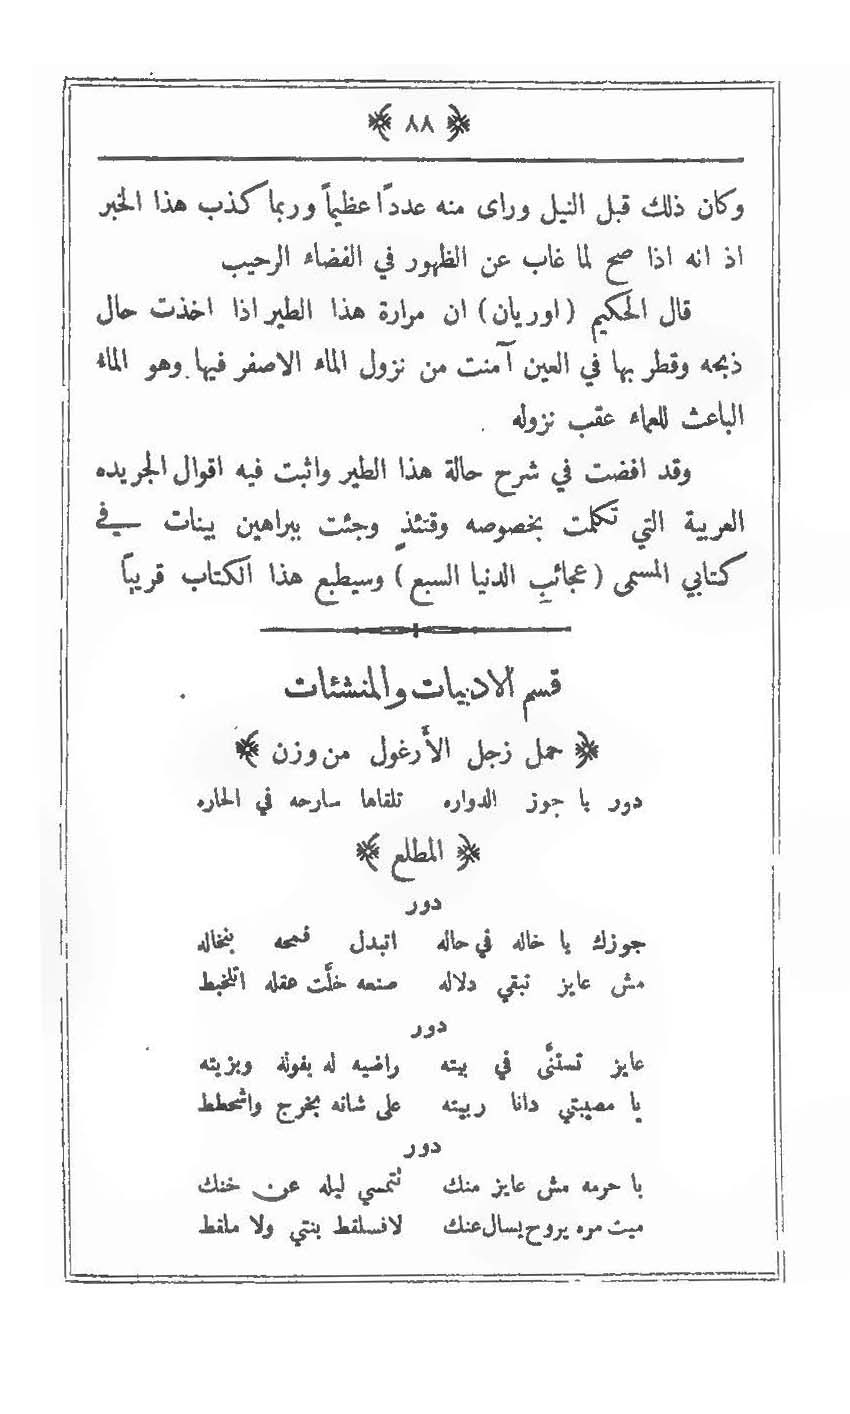 ﴿ ٨٨ ﴾
وكان ذلك قبل النيل وراى منه عدداً عظيماً وربما كذب هذا الخبر
اذ انه اذا صح لما غاب عن الظهور في الفضاء الرحيب
قال الحكيم (اوريان) ان مرارة هذا الطير اذا اخذت حال
ذبحه وقطر بها في العين آمنت من نزول الماء الاصفر فيها وهو الماء
الباعث للعماء عقب نزوله
وقد افضت في شرح حالة هذا الطير واثبت فيه اقوال الجريده
العربية التي تكلمت بخصوصه وقتئذٍ وجئت ببراهين بينات في
كتابي المسمى (عجائبِ الدنيا السبع) وسيطبع هذا الكتاب قريباً
قسم الادبيات والمنشئات
﴿ حمل زجل الأرغول من وزن ﴾
دور يا جوز الدواره تلقاها سارحه في الحاره
﴿ المطلع ﴾
دور
جوزك يا خاله في حاله اتبدل قمحه بنخاله
مش عايز تبقي دلاله صنعه خلَّت عقله اتلخبط
دور
عايز تستنَّى في بيته راضيه له بفوله وبزيته
يا مصيبتي دانا ربيته على شانه بخرج واشحطط
دور
يا حرمه مش عايز منك نتمسي ليله عن خنك
ميت مره يروح يسال عنك لافسلقط بنتي ولا ملقط